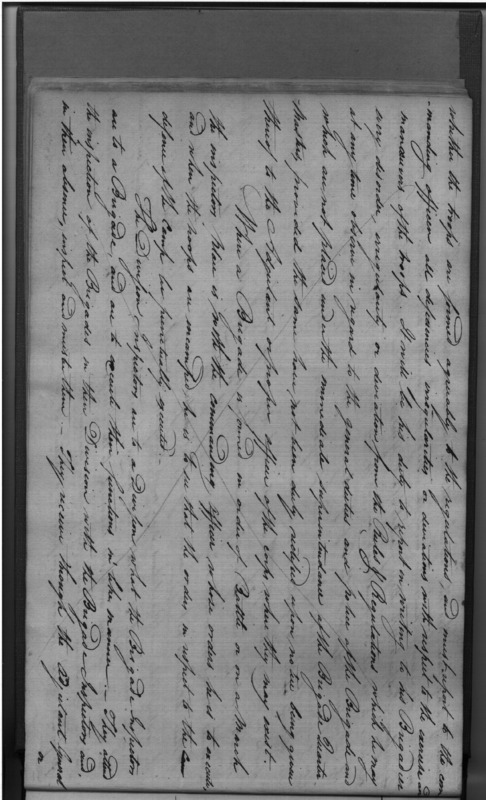 whether the troops are formed agreeably to the regulations and must report to the com
-manding officer all defaults irregularities or deviations with respect to the exercise and
manœuvres of the troops. It will be his duty to report in writing to his Brigadier
every disorder, irregularity or deviation from the Rules & Regulations which he may
at any time observe in regard to the general duties and police of the Brigade and
which are not placed under the immediate superintendance of the Brigade Quarter
Master, provided the same have not been duly noticed upon notice being given
thereof to the Adjutant or proper officer of the corps where they may exist.
When a Brigade is formed in order of Battle or on a March
the inspectors place is with the commanding officer whose orders he is to execute,
and when the troops are encamped he is to see that the orders in respect to the
defence of the Camp be punctually executed.
The Division Inspectors are to a Division what the Brigade Inspectors
are to a Brigade, and are to execute their functions in like manner. They attend
the inspection of the Brigades in their Division with the Brigade Inspectors, and
in their absence, inspect and muster them. They receive through the Adjutant General
or